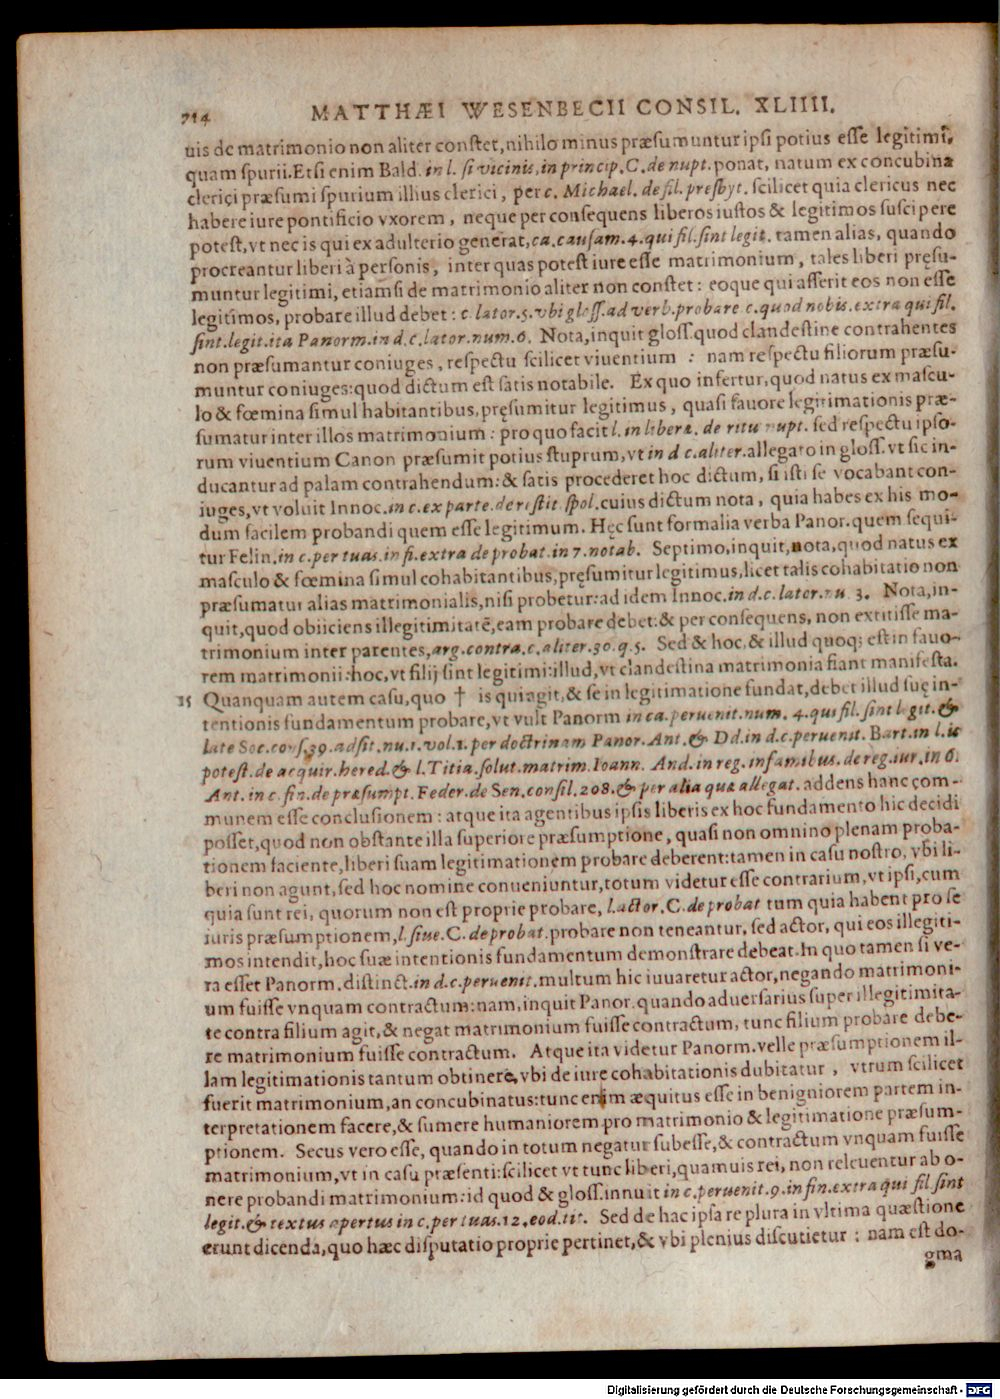 714 MATTHÆI WESENBECII CONSIL. XLIIII.
uis de matrimonio non aliter constet, nihilo minus præsumuntur ipsi potius esse legitimi,
quam spurii. Etsi enim Bald. in l. si vicinis, in princip. C. de nupt. ponat, natum ex concubina
clerici præsumi spurium illius clerici, per c. Michael. de fil. presbyt. scilicet quia clericus nec
habere iure pontificio vxorem, neque per consequens liberos iustos & legitimos suscipere
potest, vt nec is qui ex adulterio generat, ca. causam. 4. qui fil. sint legit. tamen alias, quando
procreantur liberi à personis, inter quas potest iure esse matrimonium, tales liberi pręsu-
muntur legitimi, etiamsi de matrimonio aliter non constet: eoque qui asserit eos non esse
legitimos, probare illud debet: c. lator. 5. vbi gloss. ad verb. probare c. quod nobis. extra qui fil.
sint. legit. ita Panorm. in d. c. lator. num. 6. Nota, inquit gloss. quod clandestine contrahentes
non præsumantur coniuges, respectu scilicet viuentium : nam respectu filiorum præsu-
muntur coniuges: quod dictum est satis notabile. Ex quo infertur, quod natus ex mascu-
lo & fœmina simul habitantibus, pręsumitur legitimus, quasi fauore legitimationis præ-
sumatur inter illos matrimonium: pro quo facit l. in liberæ. de ritu nupt. sed respectu ipso-
rum viuentium Canon præsumit potius stuprum, vt in d c. aliter. allegato in gloss. vt sic in-
ducantur ad palam contrahendum: & satis procederet hoc dictum, si isti se vocabant con-
iuges, vt voluit Innoc. in c. ex parte. de restit. spol. cuius dictum nota, quia habes ex his mo-
dum facilem probandi quem esse legitimum. Hęc sunt formalia verba Panor. quem sequi-
tur Felin. in c. per tuas. in fi. extra de probat. in 7. notab. Septimo, inquit, nota, quod natus ex
masculo & fœmina simul cohabitantibus, pręsumitur legitimus, licet talis cohabitatio non
præsumatur alias matrimonialis, nisi probetur: ad idem Innoc. in d. c. lator. nu 3. Nota, in-
quit, quod obiiciens illegitimitatē, eam probare debet: & per consequens, non extitisse ma-
trimonium inter parentes, arg. contra. c. aliter. 30. q. 5. Sed & hoc, & illud quoq; est in fauo-
rem matrimonii: hoc, vt filij sint legitimi: illud, vt clandestina matrimonia fiant manifesta.
15 Quanquam autem casu, quo † is qui agit, & se in legitimatione fundat, debet illud suę in-
tentionis fundamentum probare, vt vult Panorm in ca. peruenit. num. 4. qui fil. sint legit. &
late Soc. cons. 39. adsit. nu. 1. vol. 1. per doctrinam Panor. Ant. & Dd. in d. c. peruenit. Bart. in l. is
potest. de acquir. hered. & l. Titia. solut. matrim. Ioann. And. in reg. infamibus. de reg. iur. in 6.
Ant. in c. fin. de præsumpt. Feder. de Sen. consil. 208. & per alia quæ allegat. addens hanc com-
munem esse conclusionem: atque ita agentibus ipsis liberis ex hoc fundamento hic decidi
posset, quod non obstante illa superiore præsumptione, quasi non omnino plenam proba-
tionem faciente, liberi suam legitimationem probare deberent: tamen in casu nostro, vbi li-
beri non agunt, sed hoc nomine conueniuntur, totum videtur esse contrarium, vt ipsi, cum
quia sunt rei, quorum non est proprie probare, l. actor. C. de probat tum quia habent pro se
iuris præsumptionem, l. siue. C. de probat. probare non teneantur, sed actor, qui eos illegiti-
mos intendit, hoc suæ intentionis fundamentum demonstrare debeat. In quo tamen si ve-
ra esset Panorm. distinct. in d. c. peruenit. multum hic iuuaretur actor, negando matrimoni-
um fuisse vnquam contractum: nam, inquit Panor. quando aduersarius super illegitimita-
te contra filium agit, & negat matrimonium fuisse contractum, tunc filium probare debe-
re matrimonium fuisse contractum. Atque ita videtur Panorm. velle præsumptionem il-
lam legitimationis tantum obtinere, vbi de iure cohabitationis dubitatur, vtrum scilicet
fuerit matrimonium, an concubinatus: tunc enim æquitus esse in benigniorem partem in-
terpretationem facere, & sumere humaniorem pro matrimonio & legitimatione præsum-
ptionem. Secus vero esse, quando in totum negatur subesse, & contractum vnquam fuisse
matrimonium, vt in casu præsenti: scilicet vt tunc liberi, quamuis rei, non releuentur ab o-
nere probandi matrimonium: id quod & gloss. innuit in c. peruenit. 9. in fin. extra qui fil. sint
legit. & textus apertus in c. per tuas. 12. eod. tit. Sed de hac ipsa re plura in vltima quæstione
erunt dicenda, quo hæc disputatio proprie pertinet, & vbi plenius discutietur : nam est do-
gma
Digitalisierung gefördert durch die Deutsche Forschungsgemeinschaft - DFG